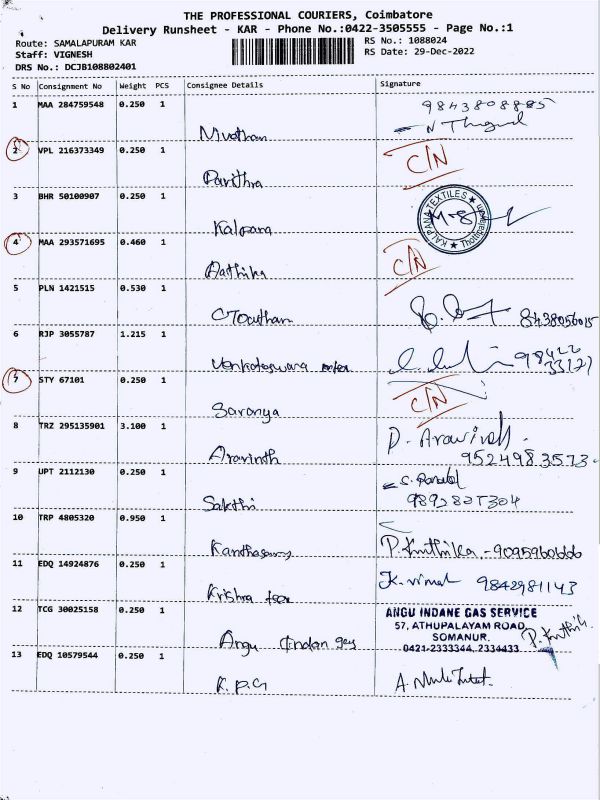 THE PROFESSIONAL COURIERS, Coimbatore
Delivery Runsheet - KAR - Phone No.:0422-3505555 - Page No.:1
Route: SAMALAPURAM KAR
RS No.: 1088024
Staff: VIGNESH
RS Date: 29-Dec-2022
DRS No.: DCJB108802401
S No Consignment No Weight PCS Consignee Details Signature
1 MAA 284759548 0.250 1 9843808885
2 VPL 216373349 0.250 1 C/N
Pavithra
3 BHR 50100907 0.250 1
Kalpana
KALPANA TEXTILES
4 MAA 293571695 0.460 1 C/N
Aathika
5 PLN 1421515 0.530 1
Goutham 8438056015
6 RJP 3055787 1.215 1
Venkateswara 98422
33127
7 STY 67101 0.250 1 C/N
Saranya
8 TRZ 295135901 3.100 1 P. Aravindh.
Aravindh 9524983573
9 UPT 2112130 0.250 1
Sakthi
10 TRP 4805320 0.950 1
Kandhasamy P. Kruthika - 9095960666
11 EDQ 14924876 0.250 1 K. vimal 9842981143
Krishna tex
12 TCG 30025158 0.250 1 ANGU INDANE GAS SERVICE
57, ATHUPALAYAM ROAD,
SOMANUR.
Angu Indan gas 0421-2333344, 2334433
13 EDQ 10579544 0.250 1
K.P.G